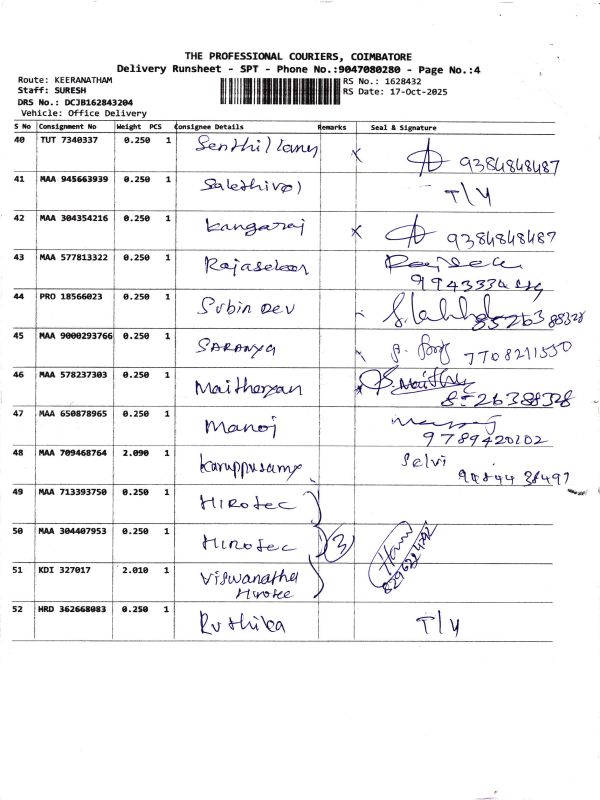 THE PROFESSIONAL COURIERS, COIMBATORE
Delivery Runsheet - SPT - Phone No.:9047080280 - Page No.:4
Route: KEERANATHAM RS No.: 1628432
Staff: SURESH RS Date: 17-Oct-2025
DRS No.: DCJB162843204
Vehicle: Office Delivery
S No Consignment No Weight PCS Consignee Details Remarks Seal & Signature
40 TUT 7340337 0.250 1 x 9384848487
41 MAA 945663939 0.250 1 Sakthivel T/Y
42 MAA 304354216 0.250 1 Kangaraj x 9384848487
43 MAA 577813322 0.250 1 Rajasekar
44 PRO 18566023 0.250 1 Subin Dev 8526388328
45 MAA 9000293766 0.250 1 SARANYA 7708211550
46 MAA 578237303 0.250 1 8526388328
47 MAA 650878965 0.250 1 Manoj 9789420202
48 MAA 709468764 2.090 1 Karuppusamy Selvi
49 MAA 713393750 0.250 1 HIROTEC
50 MAA 304407953 0.250 1 HIROTEC 3
51 KDI 327017 2.010 1 Viswanatha
52 HRD 362668083 0.250 1 Ruthika T/Y